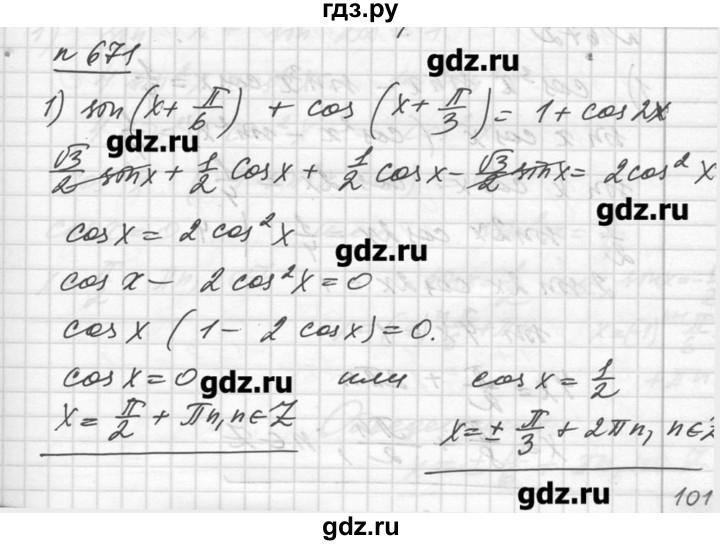 гдз.ру
n 671
gdz.ru
1) sin(x + π/6) + cos(x + π/3) = 1 + cos2x
gdz.ru
√3/2 sinx + 1/2 cosx + 1/2 cosx - √3/2 sinx = 2cos² x
gdz.ru
cosx = 2 cos²x
gdz.ru
cos x - 2 cos²x = 0
cos x (1 - 2 cosx) = 0.
cos x = 0 или cos x = 1/2
gdz.ru
x = π/2 + πn, n∈Z
x = ± π/3 + 2πn, n∈Z
gdz.ru
101
gdz.ru